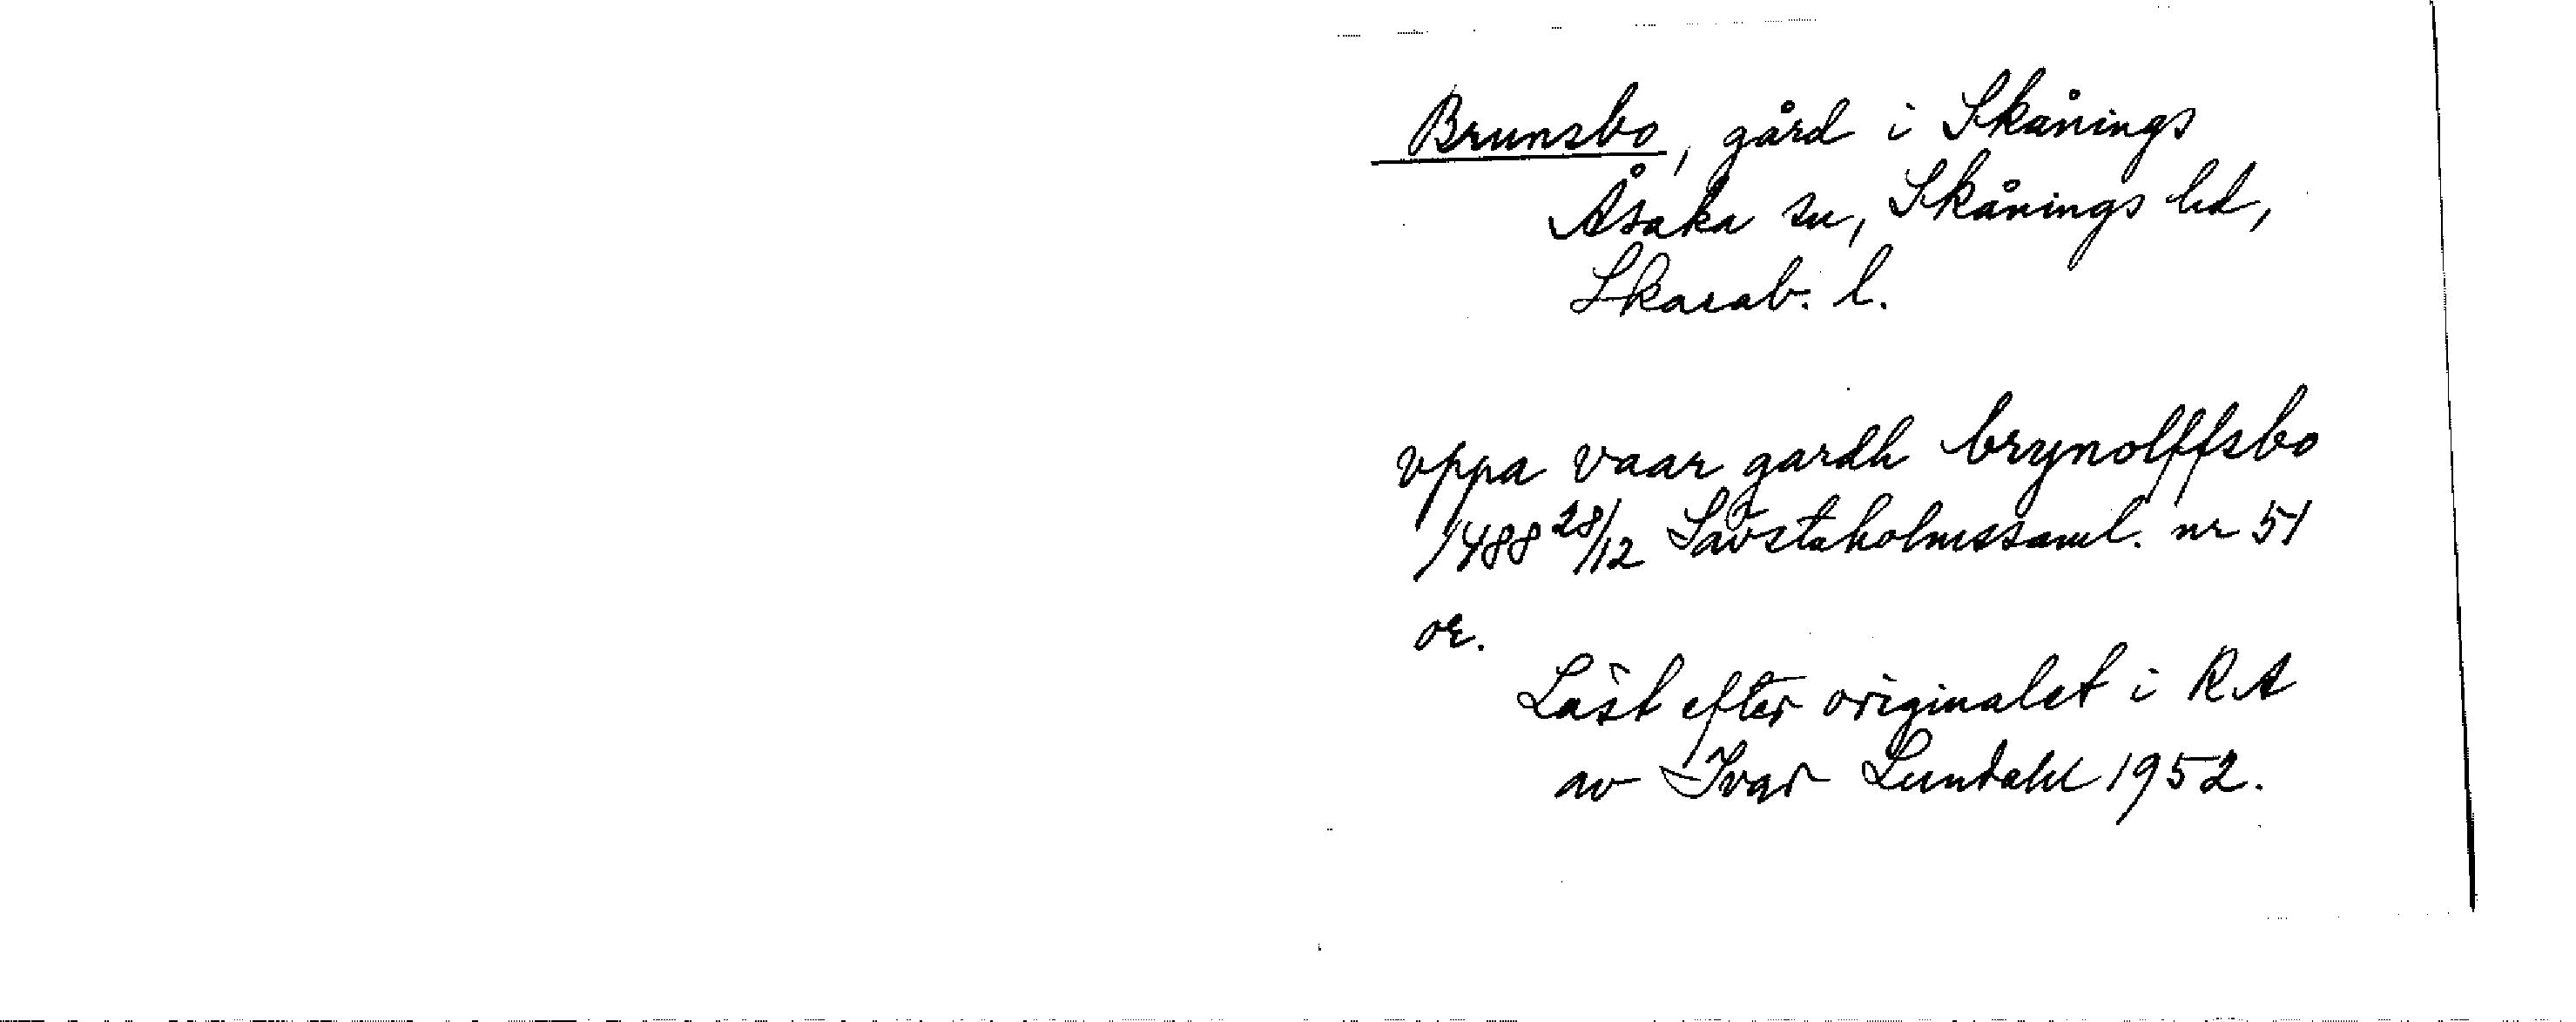 Brunsbo, gård i Skånings
Åsaka sn, Skånings hd,
Skarab. l.
vppa vaar gardh brynolffsbo
1488 28/12 Sävstaholmssaml. nr 51
or.
Läst efter originalet i R.A
av Ivar Lundahl 1952.